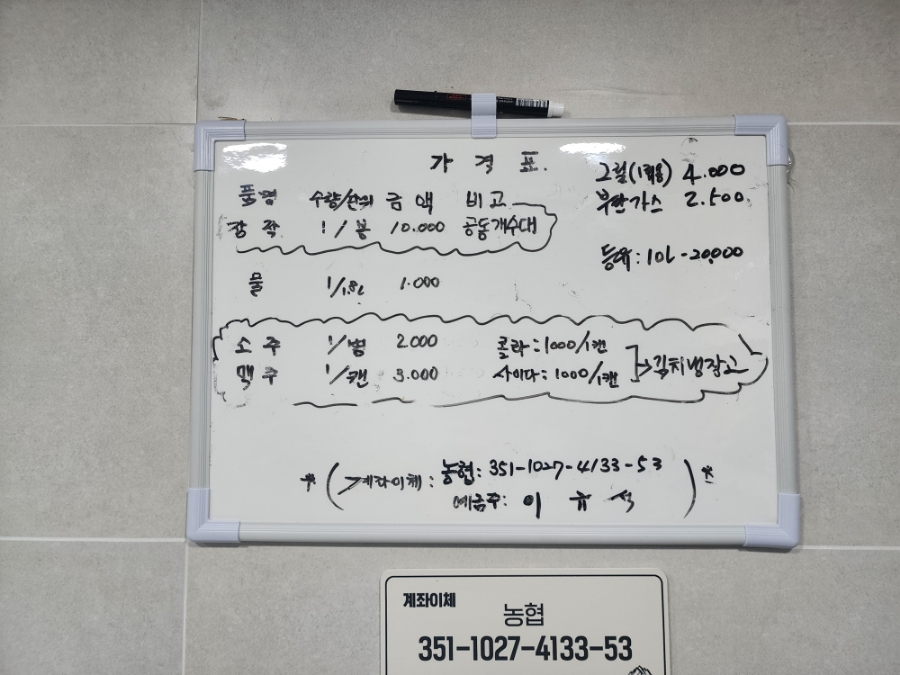 가 격 표.
그릴(1회용) 4.000
부탄가스 2.500
품명 수량/단위 금액 비고
장작 1/봉 10.000 공동개수대
등유:10L-20,000
물 1/1.8L 1.000
소주 1/병 2.000 콜라:1000/1캔
맥주 1/캔 3.000 사이다:1000/1캔 →김치냉장고
*( >계좌이체: 농협: 351-1027-4133-53 )*
예금주: 이 규 석
계좌이체
농협
351-1027-4133-53